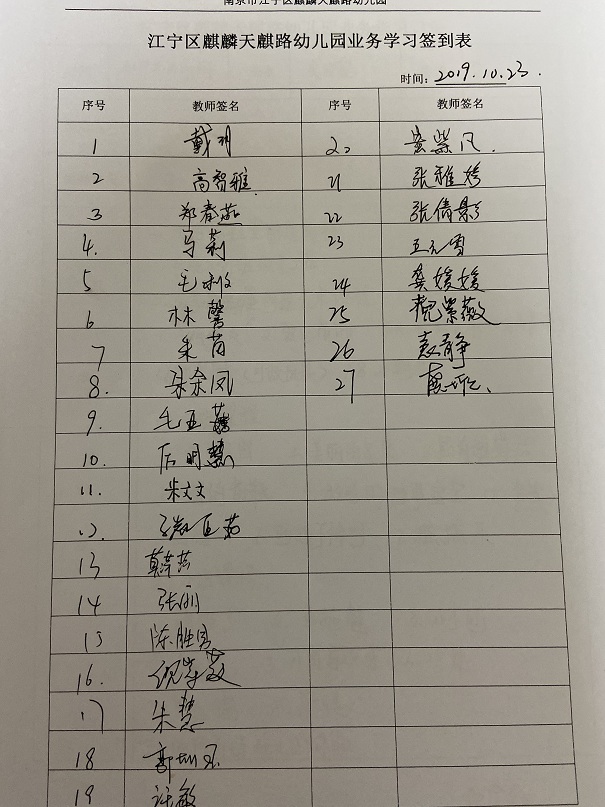 南京市江宁区麒麟天麒路幼儿园
江宁区麒麟天麒路幼儿园业务学习签到表
时间：2019.10.23.
序号 教师签名 序号 教师签名
1 戴玥 20 紫凤
2 高智雅 21 张雅婷
3 郑春燕 22 张倩影
4. 马莉 23
5 毛 24 龚媛媛
6 林馨 25 倪紫薇
7 朱茵 26 袁静
8. 余凤 27
9. 毛亚
10. 后明慧
11. 朱文文
12.
13
14 张丽
15 陈胜男
16. 倪紫薇
17 朱慧
18 郭
19 许敏